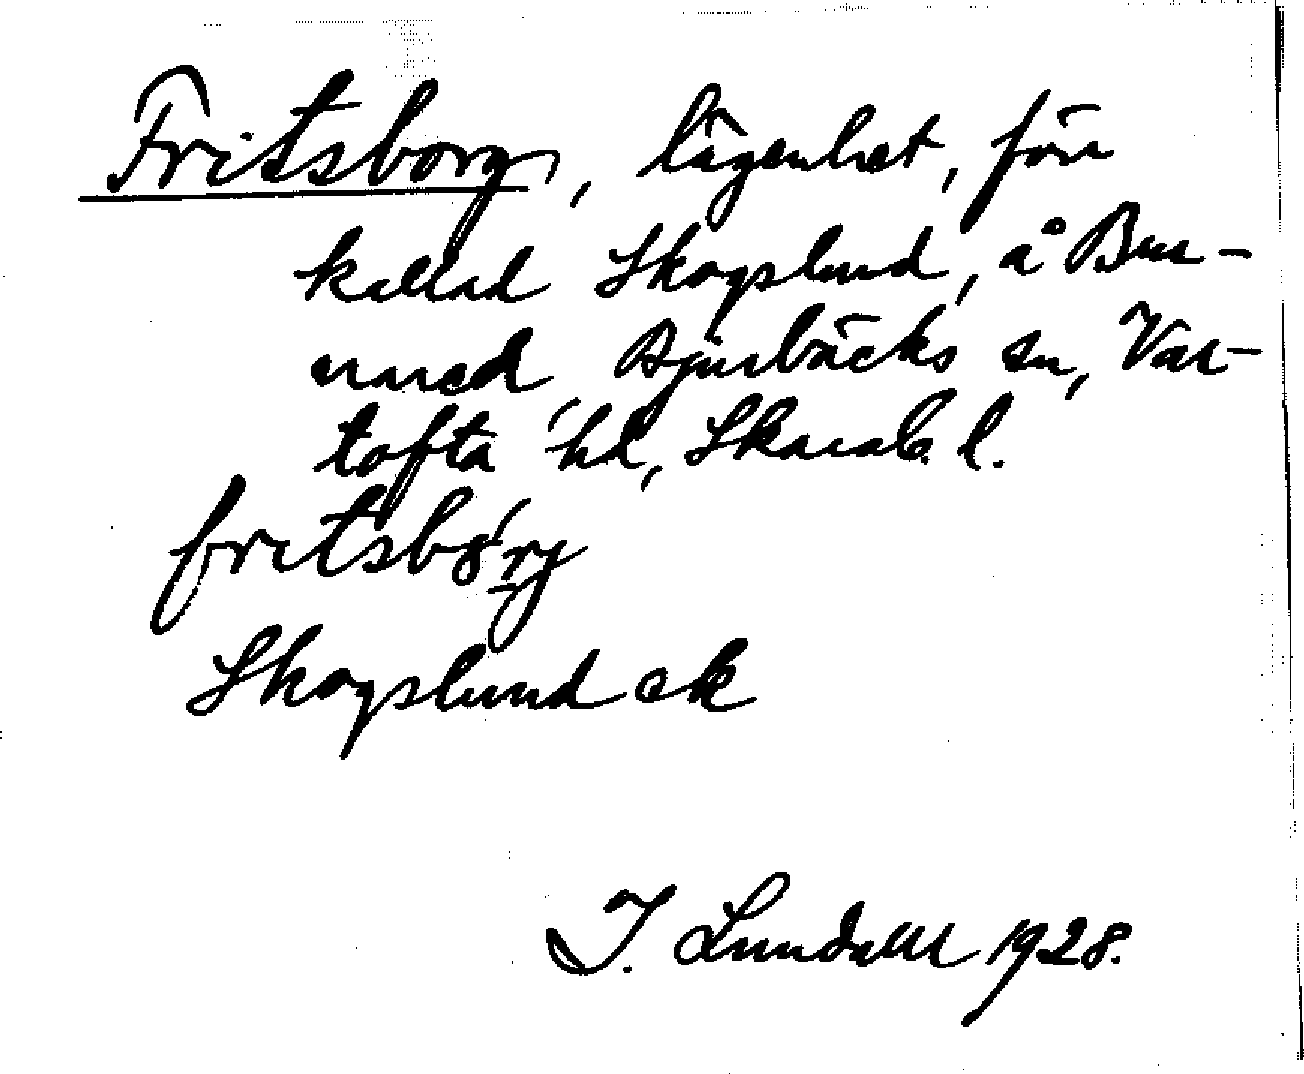 Fritsborg, lägenhet, förr
kallad Skogslund, å Bur-
mared, Bjurbäcks sn, Var-
tofta hd, Skarab. l.
fritsbǿrj
Skogslund ek
J. Lundahl 1928.